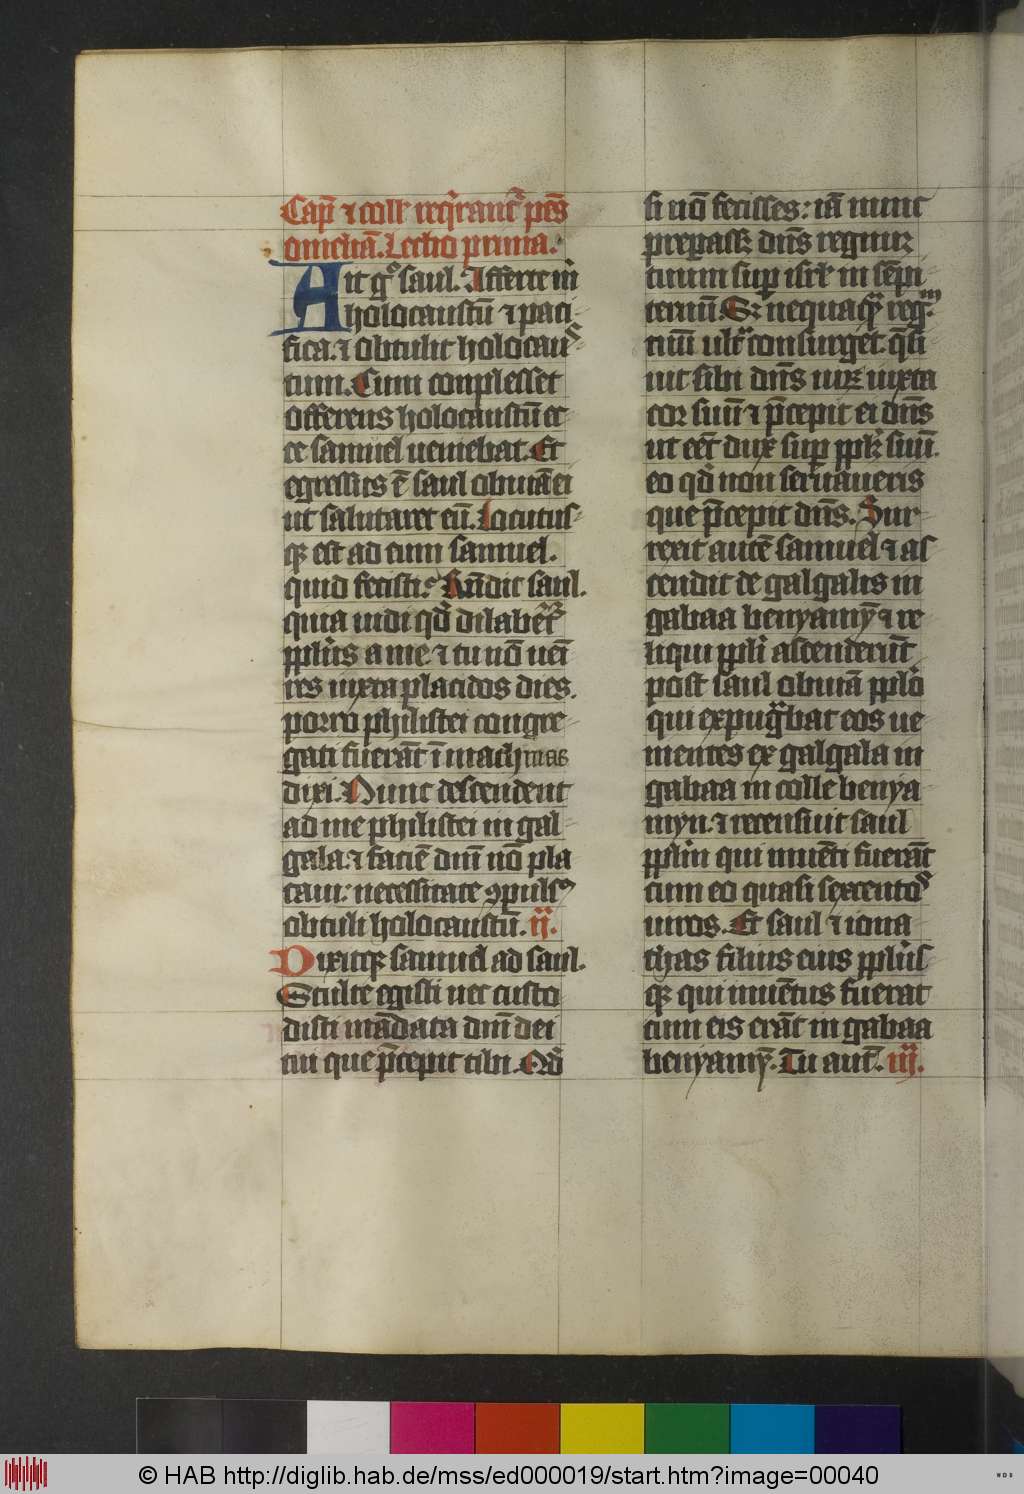 Cap̄ ⁊ coll' req̇rant᷑ pꝰ
omeliā. Lectio prima.
Ait gͦ saul. Afferte m̄
holocaustū ⁊ paci-
fica. ⁊ obtulit holocauſ-
tum. Cum conplesset
offerens holocaustū ec
ce samuel ueniebat. Et
egressus ē saul obuiā ei
ut salutaret eū. Locutus-
qꝫ est ad eum samuel.
quid fecisti? R̄ndit saul.
quia uidi qd̓ dilabet᷑
ppl̓us a me ⁊ tu nō uēi
res iuxta placidos dies.
porro philistei congre-
gati fuerāt ī machmas
dixi. Nunc descendent
ad me philistei in gal-
gala. ⁊ faciē dn̄i nō pla
caui: necessitate ꝯpulsꝰ
obtuli holocaustū. ij.
Dixitqꝫ samuel ad saul.
Stulte egisti nec custo
disti mādata dn̄i dei
tui que p̄cepit tibi. Qd̓
si nō fecisses: iā nunc
preparass; dn̄s regnum
tuum suꝑ isr̄l in sēpi
ternū. Sꝫ nequaqͣm reg-
nū ult᷑ consurget. q̄si
uit sibi dn̄s uiꝝ iuxta
cor suū ⁊ p̄cepit ei dn̄s
ut eēt dux suꝑ ppl̓m suū.
eo qd̓ non seruaueris
que p̄cepit dn̄s. Sur-
rexit autē samuel ⁊ as
cendit de galgalis in
gabaa benyamȳ ⁊ re
liqui ppl̓i ascenderūt
post saul obuiā ppl̓o
qui expugͣbat eos ue
nientes ex galgala in
gabaa in colle benya
myn. ⁊ recensuit saul
ppl̓m qui inuēti fuerāt
cum eo quasi sexcentoſ
uiros. Et saul ⁊ iona
thas filius eius ppl̓us
qꝫ qui inuētus fuerat
cum eis erāt in gabaa
benyamȳ. Tu aut᷑. iij.
© HAB http://diglib.hab.de/mss/ed000019/start.htm?image=00040